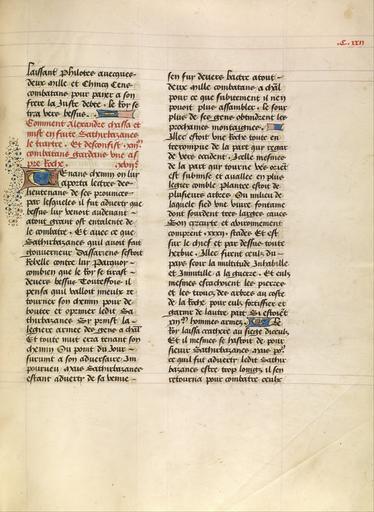 .C. xxii
laissant philotes auecques
deux mille et chincq cens
combatans pour paier a son
frere la iuste debte. le roy se
tira vers bessus.
Comment Alexandre chassa et
mist en fuite Sathirbazanes
le traitre. Et desconfist
combatans gardans une
roche.
chemin on luy
aporta lettres des
lieutenans de ses prouinces
par lesquelles il fut aduerty que
bessus luy venoit audeuant
atout grant et entalente de
le combatre. Et auec ce que
Sathirbazanes quil auoit fait
gouuerneur estoit
rebelle contre luy
combien que le roy se tirast
deuers bessus Toutesfois il
pensa quil valloit mieulx re
tourner son chemin pour de
bouter et oprimer ledit Sa
thirbazanes Sy prinst la
legiere armee des gens a chal
Et toute nuit erra tenant son
chemin Du point du iour
suruint a son aduersaire Im
pourueu mais Sathirbazanes
estant aduerty de sa venue
sen fuy deuers bactre atout
deux mille combatans a chal
pour ce que subitement il nen
pouoit plus assembler. le sour
plus de ses gens obtindrent les
prochaines montaignes.
Illec estoit une roche toute en
trerompue de la part qui regar
de vers occident. Icelle mesmes
de la part qui tourne vers orient
est submise et auallee en plus
legiere comble plantee est de
plusieurs arbres. Ou milieu de
laquele sied une viue fontaine
dont sourdent tres larges eaues
Son circuite et
comprent .xxxij. stades. Et est
sur le chief et par dessus toute
herbue. Illec furent ceulx du
pays pour la multitude Inhabile
et Innutille a la guerre. Et eulx
mesmes errachoient les pierres
et les troncs des arbres au coste
de la roche pour eulx fortifier et
garnir de lautre part Si estoient
hommes armez.
roy laissa au siege diceulx
Et il mesmes se hastoit de pour
sieuir Sathirbazanes. mais pour
ce quil fut aduerty ledit Sathir
bazanes estre trop loings il sen
retourna pour combatre ceulx